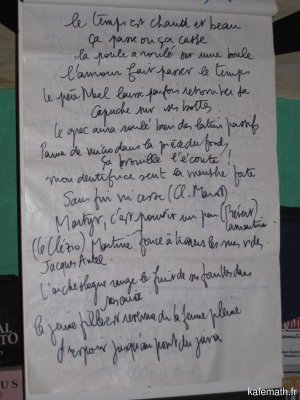 le temps est chaud et beau
ça passe ou ça casse
la poule a roulé sur une boule
l'amour fait passer le temps
le père Noel laisse parfois retomber sa
capuche sur ses bottes.
le grec aura roulé bien des latins passifs
Panne de micro dans la pièce du fond,
ça brouille l'écoute !
mon dentifrice sent la menthe forte
Sans fin ni cesse (Cl. Marot).
Martyr, c'est pourrir un peu (Prévert)
(le Clézio) Martine fonce à travers les
Jacques Antel
L'archéologue range le fruit de ses fouilles dans
la jeune fille est revenue de la ferme pleine
d'espoir jusqu'au pont du
kafemath.fr